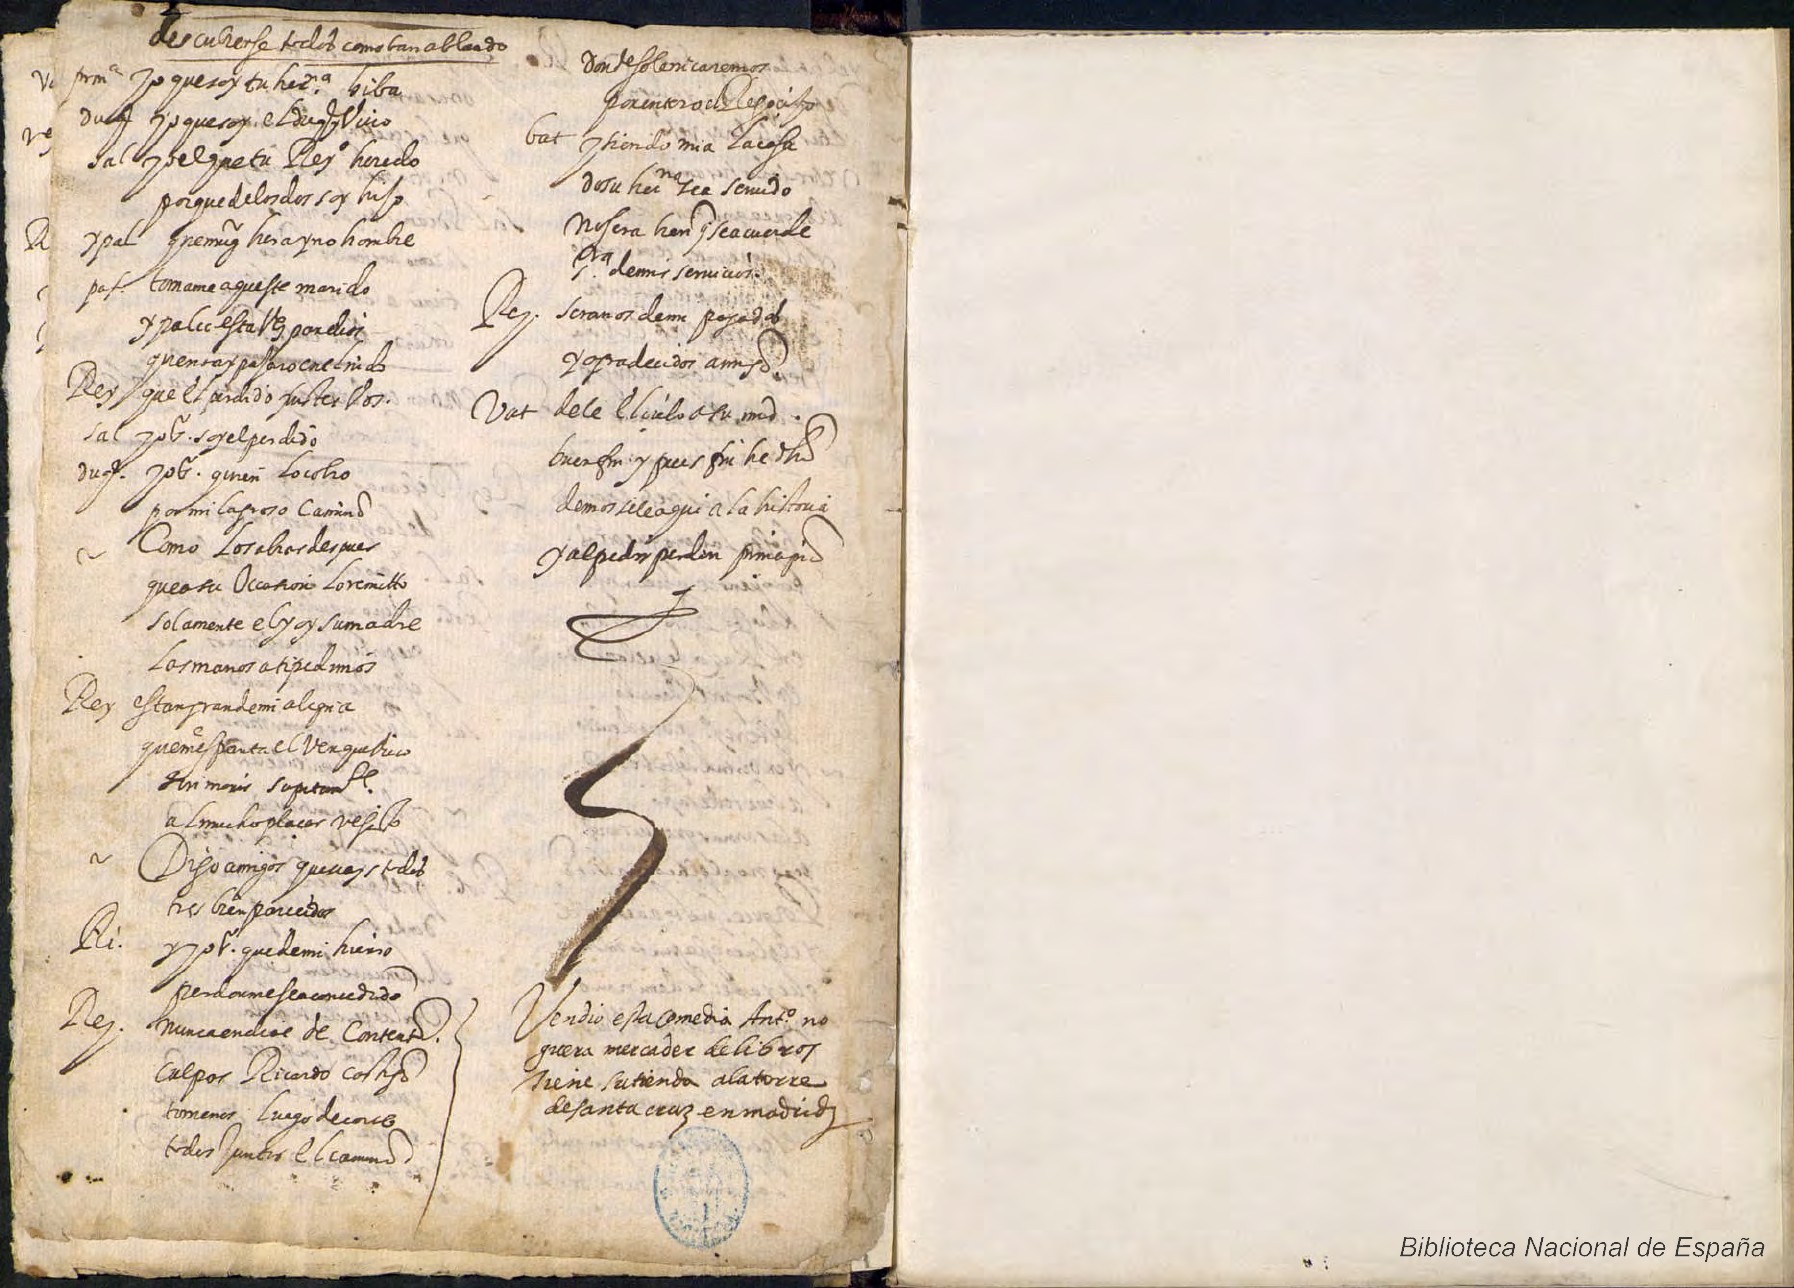 descubrerse todos como ban ablando
prinª yo que soy tu herª. biba
duq yo que soy el duq̃ vivo
sal yo el que tu Reyº heredo
porque de los dos soy hijo
y pal que mug̃ hera y no hombre
pas. tomame aqueste marido
y pal
que
Rey que el perdido
sal yo Sr. soy el perdido
duq. yo Sr. quien lo cobro
por milagroso camino
Como los abras despues
que a su occasion lo remitto
solamente el y oy su madre
las manos a ti pedimos
Rey es tan grande mi alegria
que me espanta el ver que bivo
sin morir
al mucho placer
Digo amigos que veays todos
tres bien parecidos
Ri. y yo Sr. que de mi hierro
perdon me sea concedido
Rey. nunca en dias de contento.
culpas Ricardo castigo
tomemos luego de corte
todos juntos el camino
donde solenicaremos
por entero el Regocijo
bat y siendo mia la casa
do tu herna sea servido
no sera bien q̃ se acuerde
Sra. de mis servicios.
Rey. seran os de mi pagados
y agradecidos amigo
Vat dele el cielo a tu md.
buen fin y pues fin he dho
demosele aqui a la historia
y al pedir perdon principio
Vendio esta comedia Antº. no
guera mercader de libros
tiene su tienda a la torre
de santa cruz en madrid
Biblioteca Nacional de España